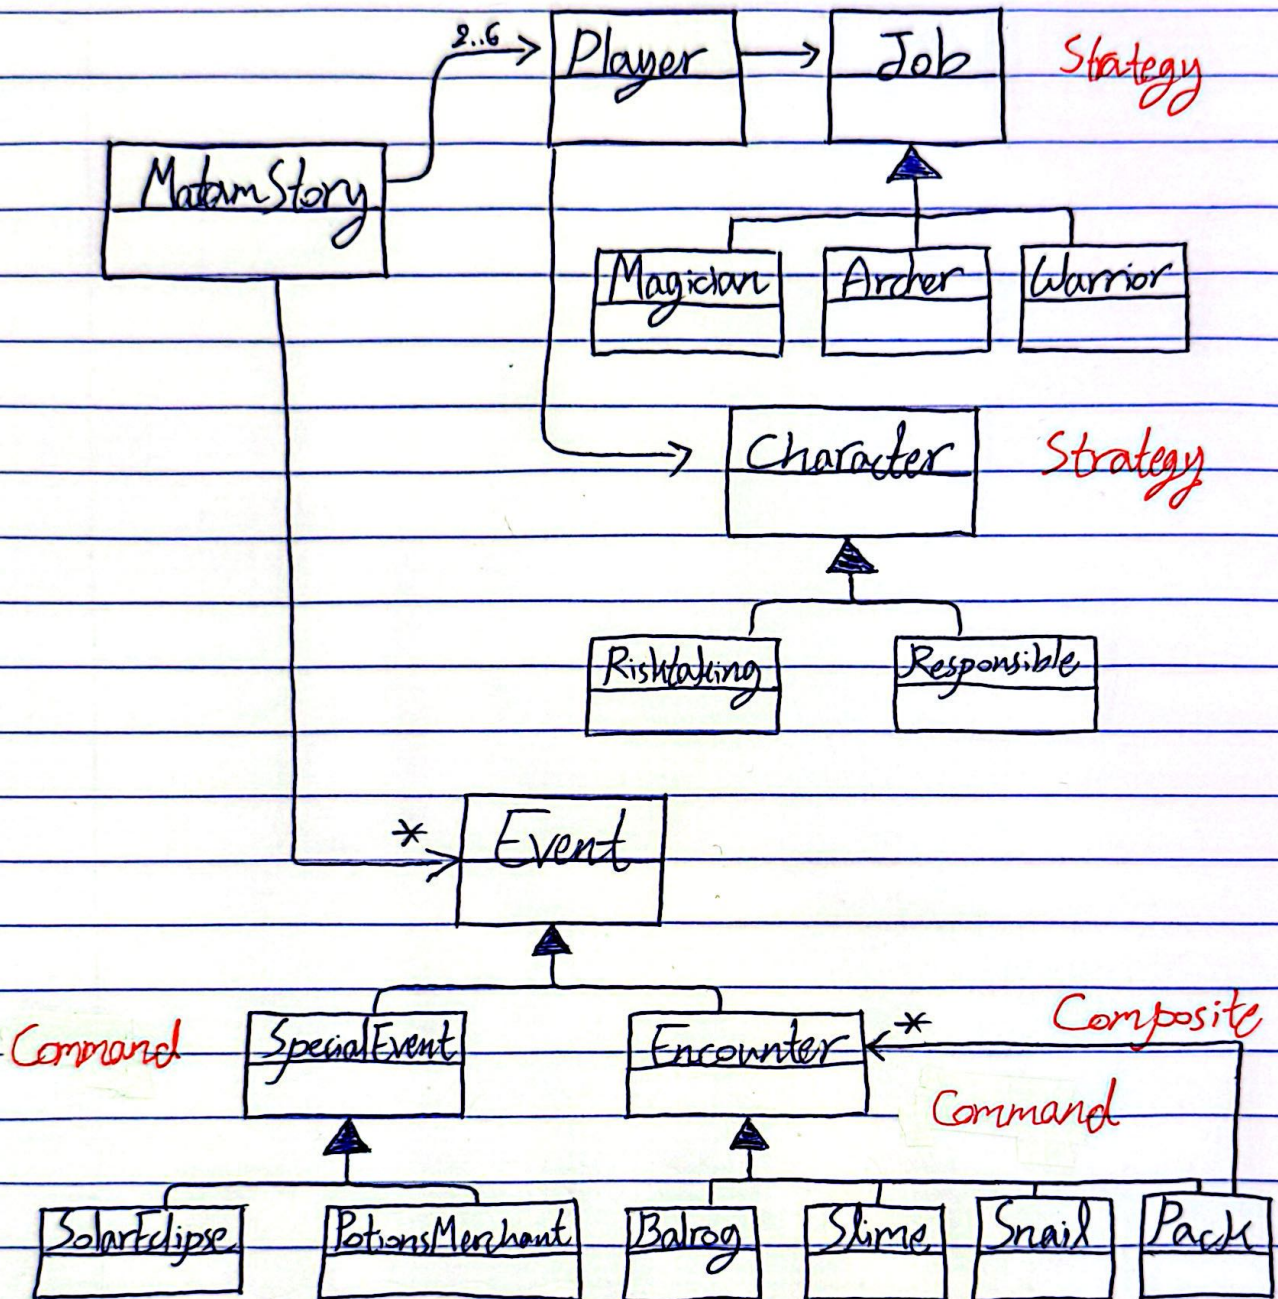 2..6
Player
Job
Strategy
MatamStory
Magician
Archer
Warrior
Character
Strategy
Risktaking
Responsible
*
Event
Command
SpecialEvent
Encounter
*
Composite
Command
SolarEclipse
PotionsMerchant
Balrog
Slime
Snail
Pack